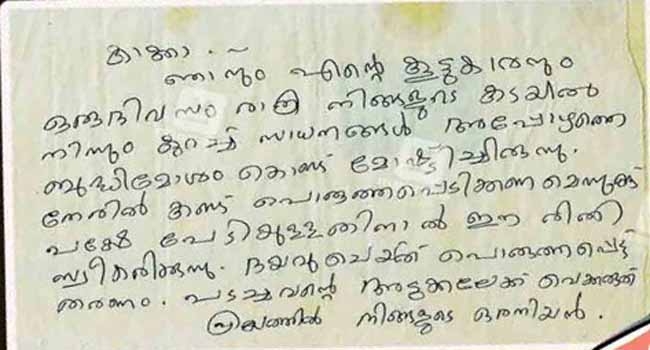 കാക്കാ . ~
ഞാനും എന്റെ കൂട്ടുകാരനും
ഒരു ദിവസം രാത്രി നിങ്ങളുടെ കടയിൽ
നിന്നും കുറച്ച് സാധനങ്ങൾ അപ്പോഴത്തെ
ബുദ്ധിമോശം കൊണ്ട് മോഷ്ടിച്ചിരുന്നു.
നേരിൽ കണ്ട് പൊരുത്തപ്പെടീക്കണമെന്നുണ്ട്
പക്ഷേ പേടിയുള്ളതിനാൽ ഈ രീതി
സ്വീകരിക്കുന്നു. ദയവുചെയ്ത് പൊരുത്തപ്പെട്ട്
തരണം. പടച്ചവന്റെ അടുക്കലേക്ക് വെക്കരുത്
പ്രിയത്തിൽ നിങ്ങളുടെ ഒരനിയൻ.